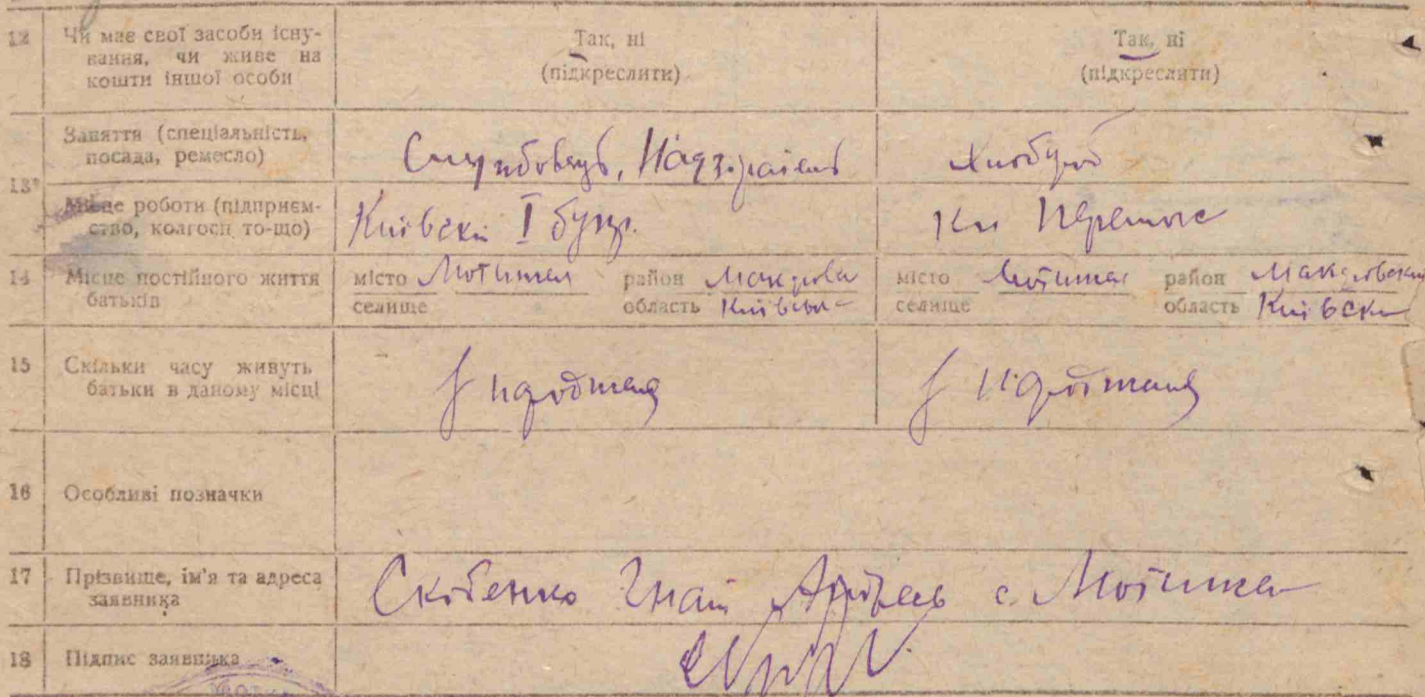 12 Чи має свої засоби існу-
вання, чи живе на
кошти іншої особи
Так, ні
(підкреслити)
Так, ні
(підкреслити)
13*
Заняття (спеціальність,
посада, ремесло)
Службовець,
Хлібороб
Місце роботи (підприєм-
ство, колгосп то-що)
Київськ I
14 Місце постійного життя
батьків
місто Мотижин район
селище область Київськ
місто Мотижин район Макаровский
селище область Київськ
15 Скільки часу живуть
батьки в даному місці
З народження
З народження
16 Особливі позначки
17 Прізвище, ім'я та адреса
заявника
Скибенко Гнат с. Мотижин
18 Підпис заявника